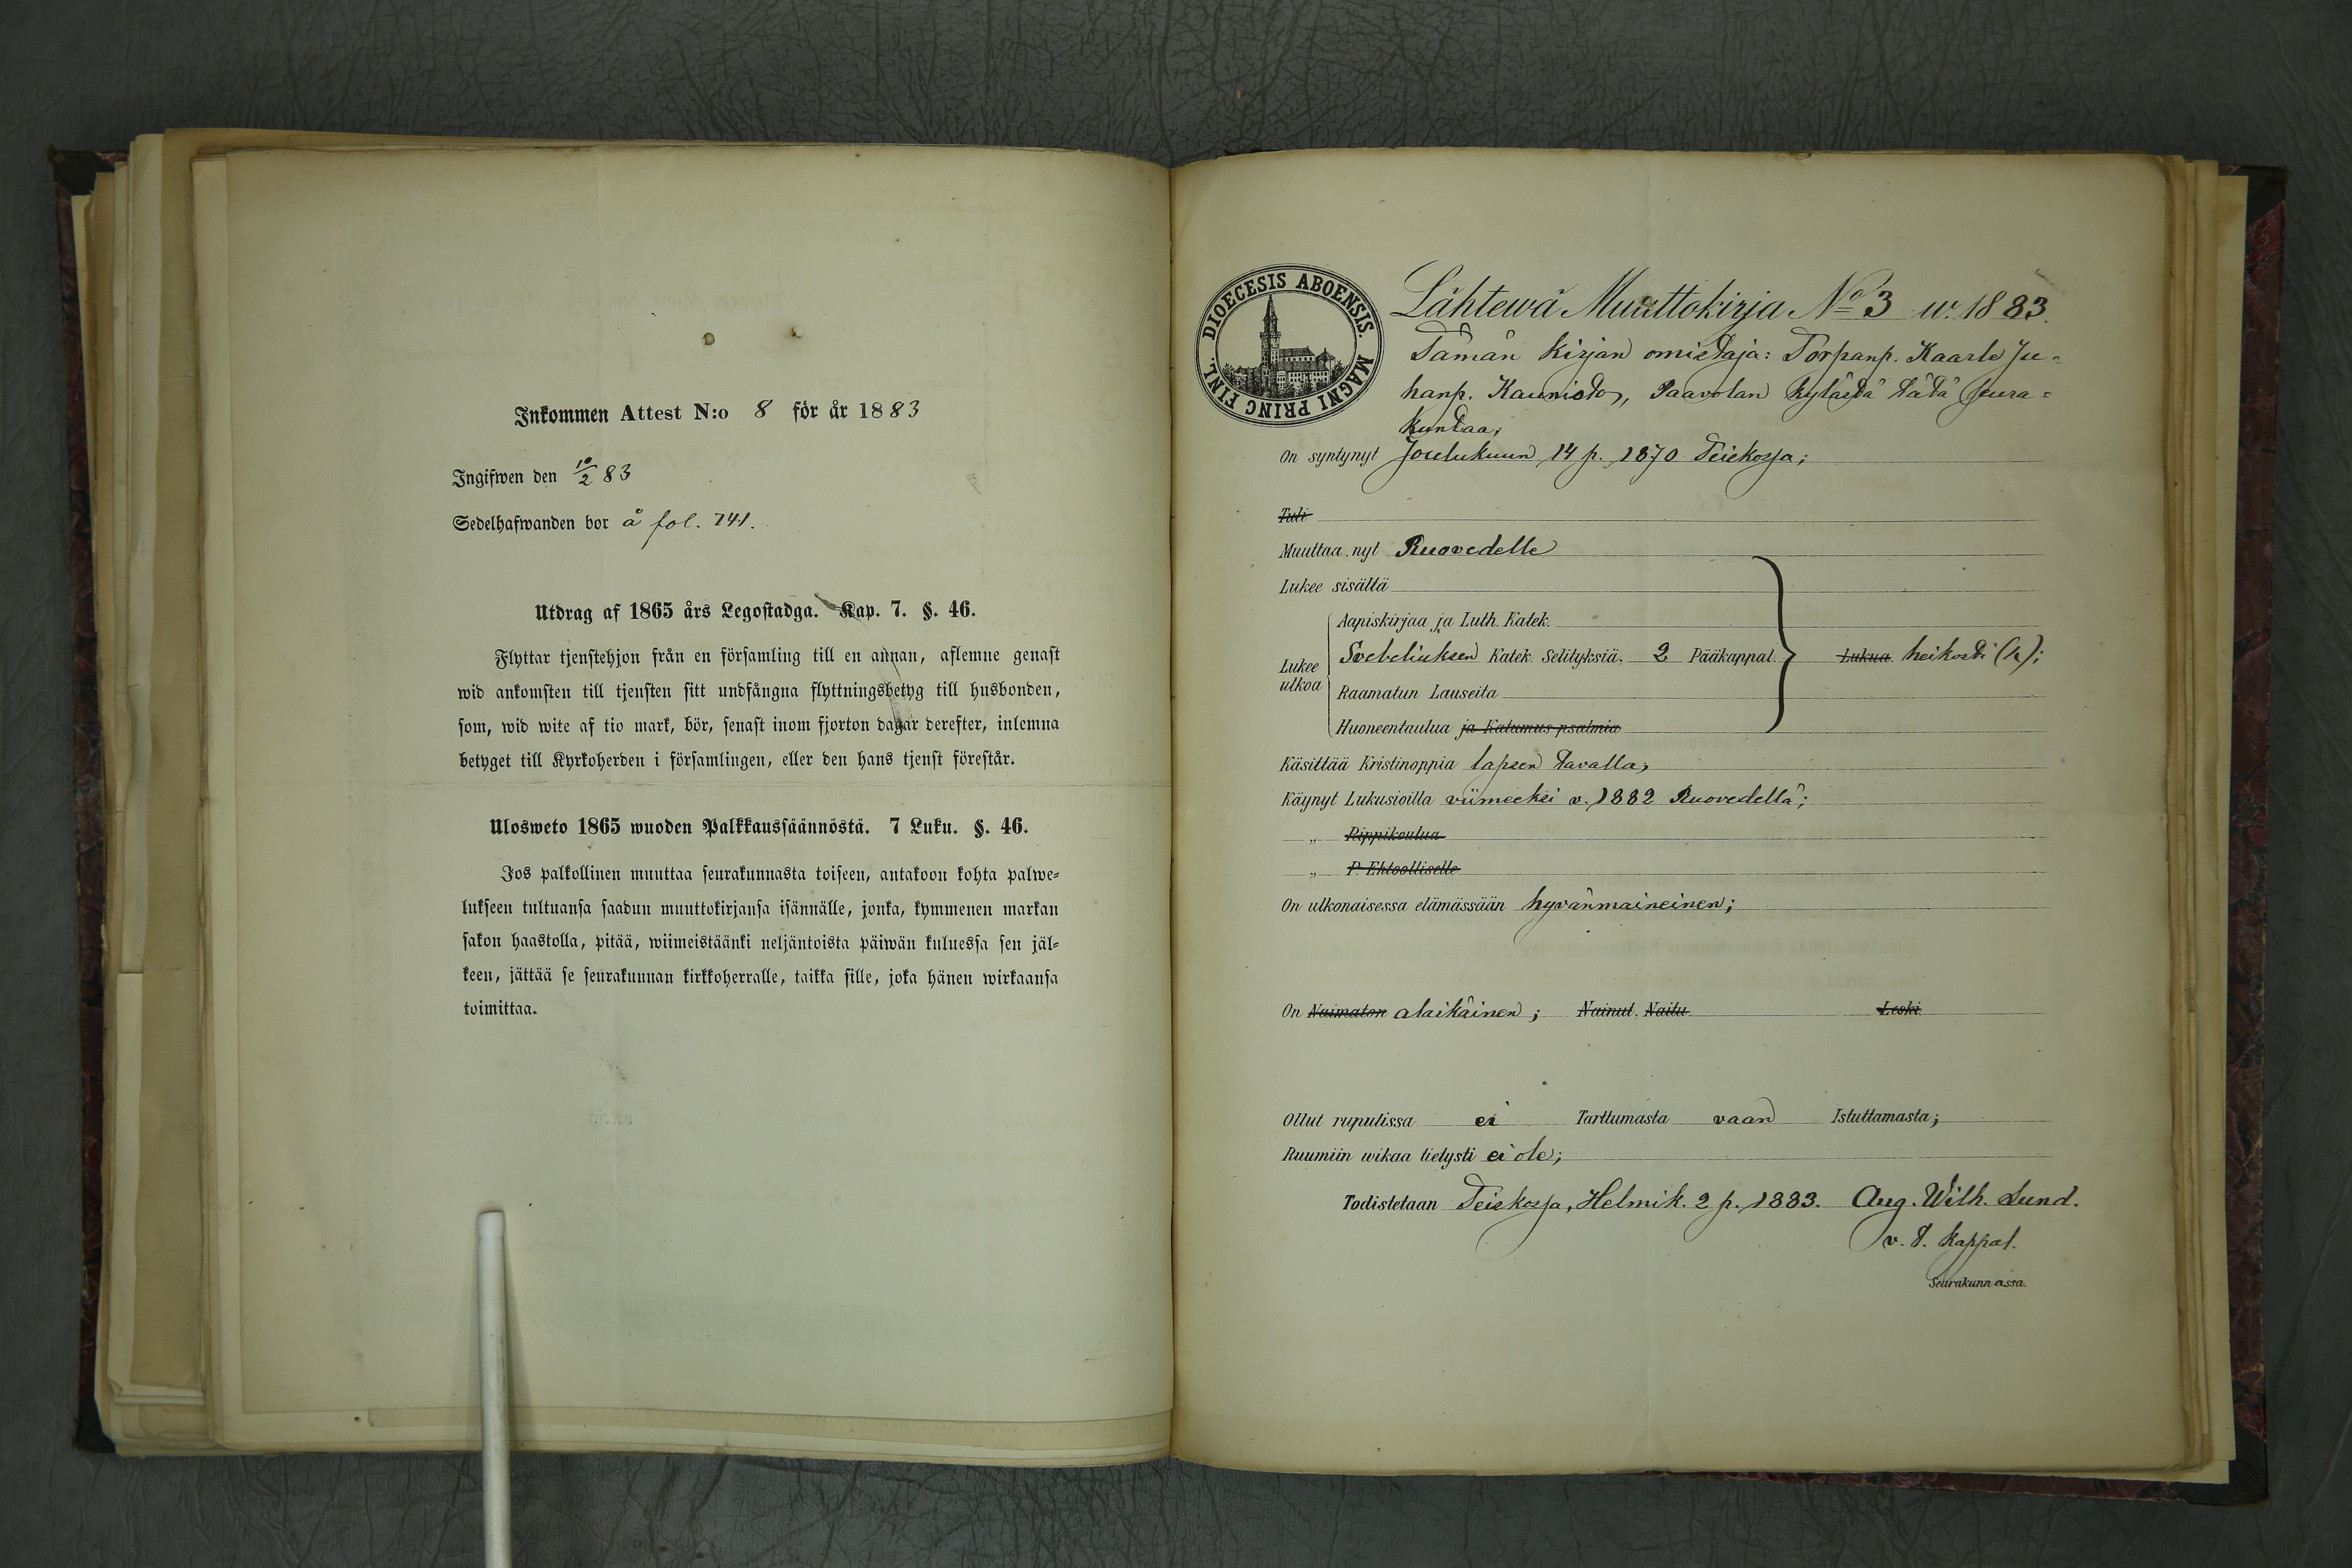 Inkommen Attest N:o 8 för år 1883
Ingifwen den 10/2 83
Sedelhafwanden bor å fol. 741.
Utdrag af 1865 års Legostadga. Kap. 7. §. 46.
Flyttar tjenstehjon från en församling till en annan, aflemne genast
wid ankomsten till tjensten sitt undfångna flyttningsbetyg till husbonden,
som, wid wite af tio mark, bör, senast inom fjorton dagar derefter, inlemna
betyget till Kyrkoherden i församlingen, eller den hans tjenst förestår.
Ulosweto 1865 wuoden Palkkaussäännöstä. 7 Luku. §. 46.
Jos palkollinen muuttaa seurakunnasta toiseen, antakoon kohta palwe-
lukseen tultuansa saadun muuttokirjansa isännälle, jonka, kymmenen markan
sakon haastolla, pitää, wiimeistäänki neljäntoista päiwän kuluessa sen jäl-
keen, jättää se seurakunnan kirkkoherralle, taikka sille, joka hänen wirkaansa
toimittaa.
DIOECESIS ABOENSIS. MAGNI PRINC FINL.
Lähtewä Muuttokirja No 3 w. 1883.
Tämän kirjan omistaja: Torpanp. Kaarle Ju-
hanp. Kaunisto, Paavolan kylästä tätä seura-
kuntaa;
On syntynyt Joulukuun 14 p. 1870 Teiskossa;
Tuli
Muuttaa nyt Ruovedelle
Lukee sisältä
Aapiskirjaa ja Luth. Katek.
Lukee ulkoa Svebeliuksen Katek. Selityksiä. 2 Pääkappal. Lukua heikosti (h);
Raamatun Lauseita
Huoneentaulua ja Katumus psalmia
Käsittää Kristinoppia lapsen tavalla;
Käynyt Lukusioilla viimeeksi v. 1882 Ruovedellä;
„ Rippikoulua
„ P. Ehtoolliselle
On ulkonaisessa elämässään hyvänmaineinen;
On Naimaton alaikäinen; Nainut. Naitu Leski
Ollut rupulissa ei Tarttumasta vaan Istuttamasta;
Ruumiin wikaa tietysti ei ole;
Todistetaan Teiskossa, Helmik. 2 p. 1883. Aug. Wilh. Lund.
v. t. kappal.
Seurakunnassa.